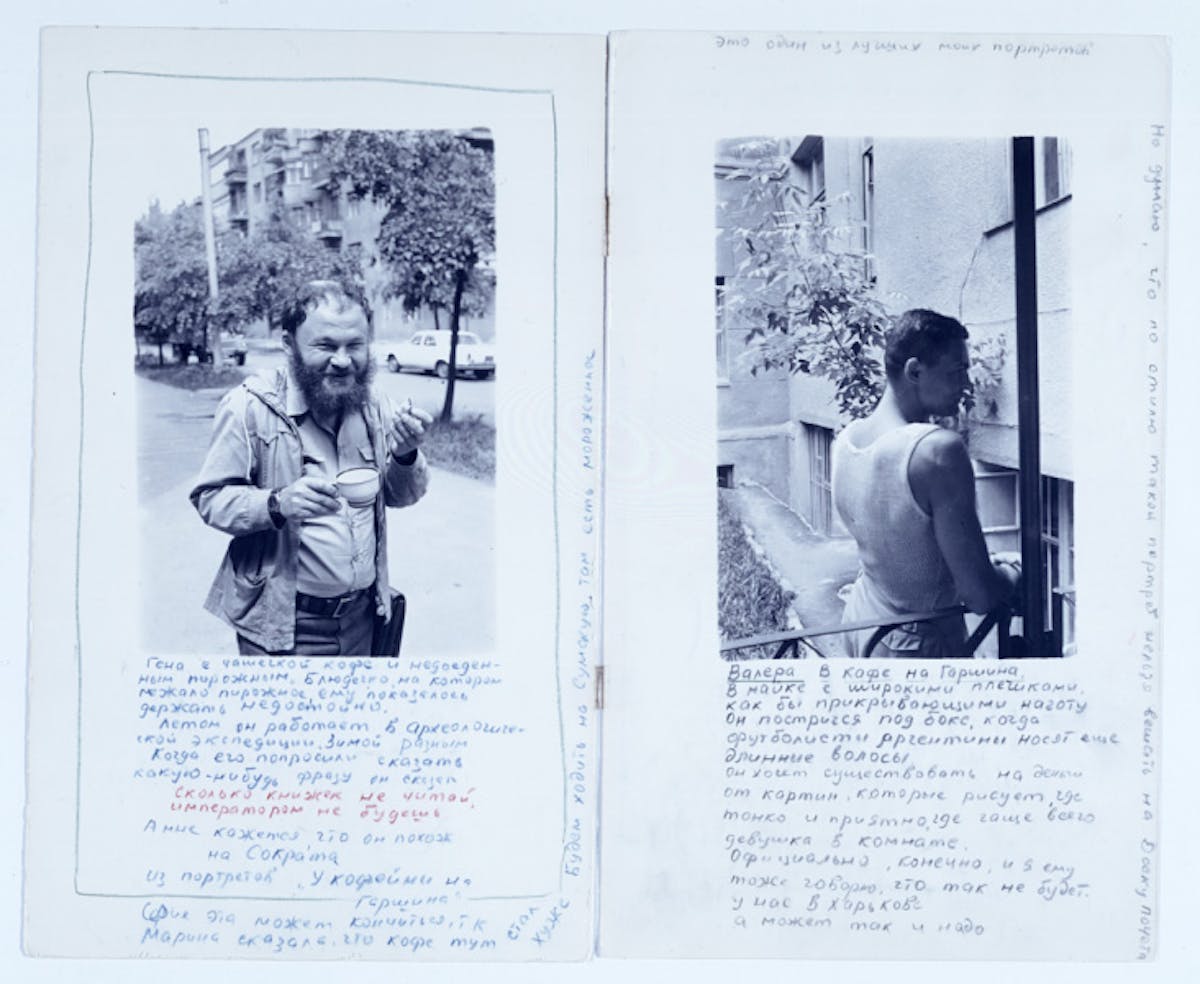 Гена с чашечкой кофе и недоеден-
ным пирожным. Блюдечко, на котором
лежало пирожное, ему показалось
держать недостойно.
Летом он работает в археологиче-
ской экспедиции, зимой разным
Когда его попросили сказать
какую-нибудь фразу он сказал
Сколько книжек не читай,
императором не будешь
А мне кажется что он похож
на Сократа
из портретов "У кофейни на
Гаршина"
Серия эта может кончиться, т.к
Марина сказала, что кофе тут стал
хуже.
Будем ходить на Сумскую, там есть мороженное
это один из лучших моих портретов
Валера В кафе на Гаршина,
В майке с широкими плечиками,
как бы прикрывающими наготу
Он постригся под бокс, когда
футболисты Аргентины носят еще
длинные волосы
он хочет существовать на деньги
от картин, которые рисует, где
тонко и приятно, где чаще всего
девушка в комнате.
Официально, конечно, и я ему
тоже говорю, что так не будет.
у нас в Харькове
а может так и надо
Но думаю, что по стилю такой портрет нельзя вешать на Доску почета